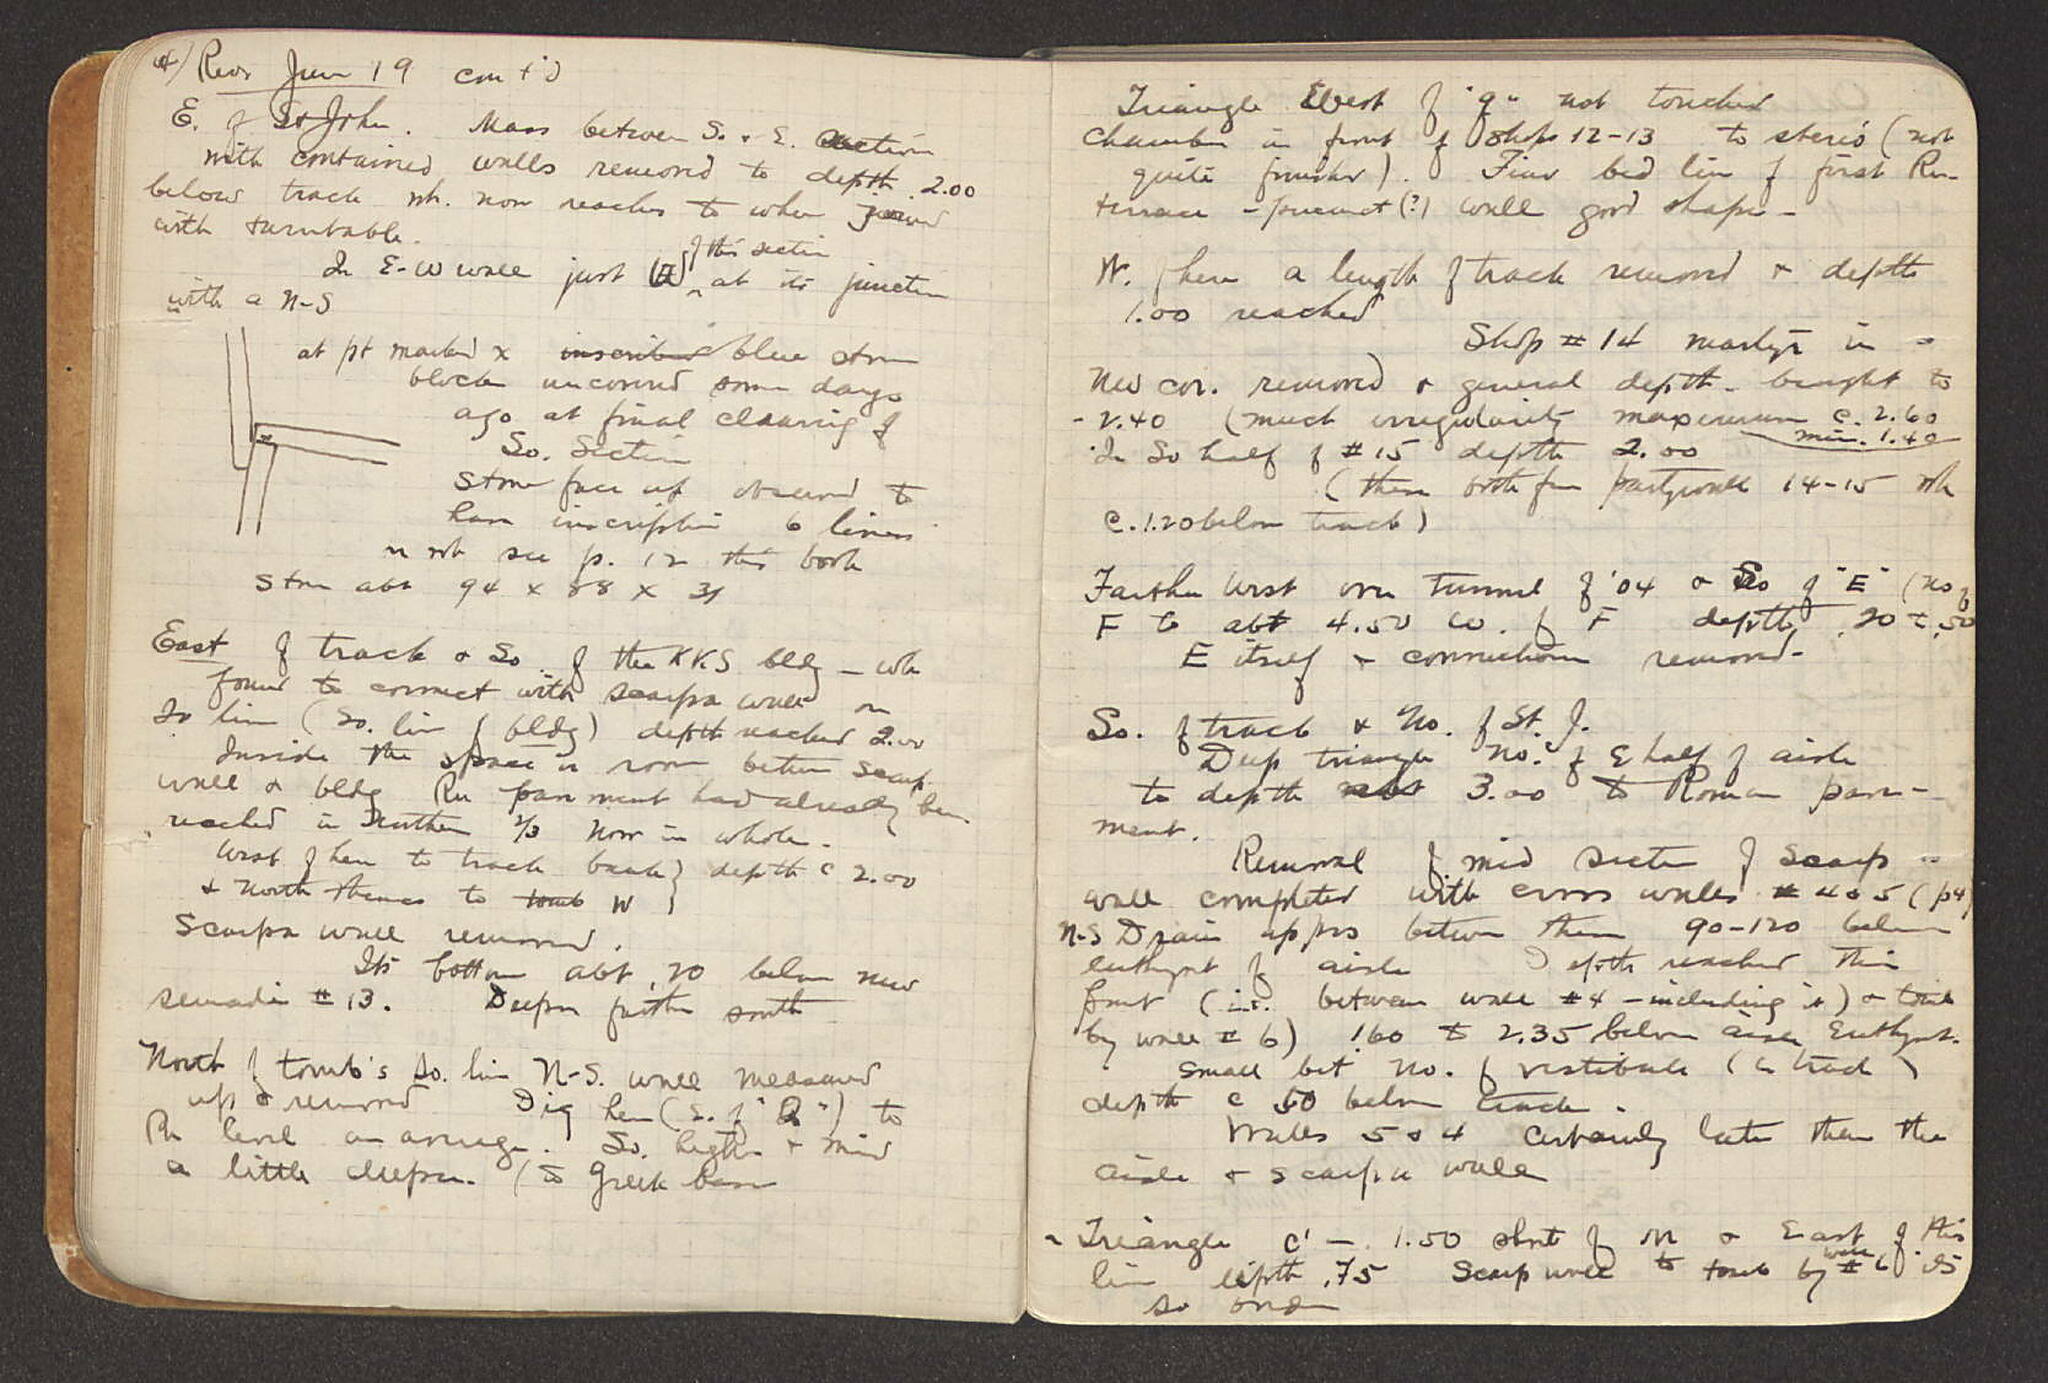 Jun 19 con t'd
E. of St John. Mass between So. & E. section
with contained walls removed to depth 2.00
below track wh. now reaches to when joined
with turntable.
of this section
In E-W wall just at its junction
with a N-S
at pt marked x inscribed blue stone
block uncovered some days
ago at final clearing of
So. Section
Stone face up observed to
have inscription 6 lines
see p. 12 this book
Stone abt 94 x 88 x 31
East of track & So. of the KKS bldg — wh
found to connect with scarpa wall on
So line (So. line of bldg) depth reached 2.00
Inside the space or room between scarp
wall & bldg Rn pavement had already been
reached in Northern 2/3 Now in whole.
West of here to track bank } depth c 2.00
& North thence to tomb W
Scarpa wall removed.
Its bottom abt .20 below new
#13. Deeper further south
North of tomb's So. line N-S. wall measured
up & removed Dig here (S. of "Q") to
Rn level on average. So. higher & mid
a little deeper. (to Greek base
Triangle West of "q" not touched
Chamber in front of shops 12-13 to stereo (not
quite finished). Find bed line of first Rn-
terrace - precinct (?) wall good shape -
W. of here a length of track removed & depth
1.00 reached
Shop #14 in
NW cor. removed & general depth brought to
- 2.40 (much irregularity maximum c. 2.60
min. 1.40
In So half of #15 depth 2.00
(there both from partywall 14-15 wh
c. 1.20 below track)
Farther West over tunnel of '04 & So of "E" (No of
F to abt 4.50 W. of F depth .20 to .50
E itself & connections removed-
So. of track & No. of St. J.
Deep triangle No. of E half of aisle
to depth abt 3.00 to Roman pave-
ment.
Removal of mid section of Scarp
wall completed with cross walls #4 & 5 (p4)
N-S Drain appears between them 90-120 below
euthynt of aisle Depth reached this
front (i.e. between wall #4 - including it) & tomb
by wall #6) 1.60 to 2.35 below aisle Euthynt.
Small bit No. of vestibule (to track)
depth c .50 below track.
Walls 5 & 4 Certainly later than the
aisle & scarpa wall
Triangle c' — 1.50 short of M & East of this
wall
line depth .75 Scarp wall to tomb by #6 is
so